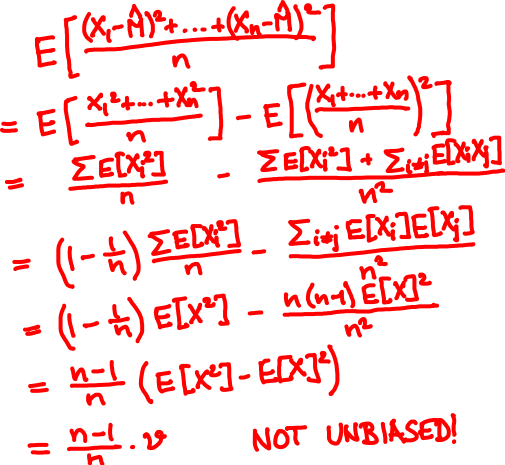 E[((X₁-M̂)²+...+(Xₙ-M̂)²)/n]
= E[(X₁²+...+Xₙ²)/n] - E[((X₁+...+Xₙ)/n)²]
= ΣE[Xᵢ²]/n - (ΣE[Xᵢ²] + Σᵢ≠ⱼE[XᵢXⱼ])/n²
= (1-1/n) ΣE[Xᵢ²]/n - Σᵢ≠ⱼ E[Xᵢ]E[Xⱼ]/n²
= (1-1/n) E[X²] - n(n-1) E[X]²/n²
= (n-1)/n (E[X²]-E[X]²)
= (n-1)/n · v NOT UNBIASED!